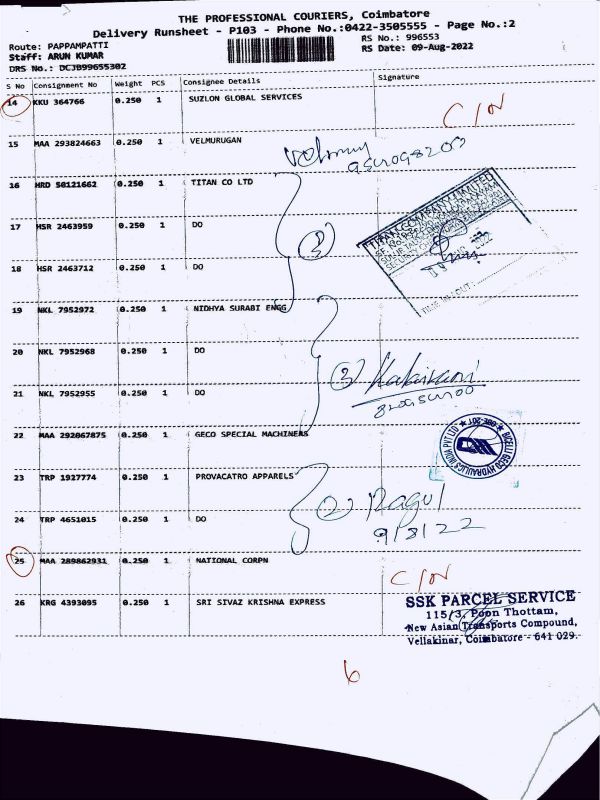 THE PROFESSIONAL COURIERS, Coimbatore
Delivery Runsheet - P103 - Phone No.:0422-3505555 - Page No.:2
Route: PAPPAMPATTI
RS No.: 996553
Staff: ARUN KUMAR
RS Date: 09-Aug-2022
DRS No.: DCJB99655302
S No Consignment No Weight PCS Consignee Details Signature
14 KKU 364766 0.250 1 SUZLON GLOBAL SERVICES
C/N
15 MAA 293824663 0.250 1 VELMURUGAN
16 HRD 50121662 0.250 1 TITAN CO LTD
17 HSR 2463959 0.250 1 DO
3
18 HSR 2463712 0.250 1 DO
19 NKL 7952972 0.250 1 NIDHYA SURABI ENGG
20 NKL 7952968 0.250 1 DO
3 Kalaivani
21 NKL 7952955 0.250 1 DO
22 MAA 292067875 0.250 1 GECO SPECIAL MACHINERS
23 TRP 1927774 0.250 1 PROVACATRO APPARELS
2 Ragul
24 TRP 4651015 0.250 1 DO
9/8/22
25 MAA 289862931 0.250 1 NATIONAL CORPN
C/N
26 KRG 4393095 0.250 1 SRI SIVAZ KRISHNA EXPRESS
SSK PARCEL SERVICE
115/3, Poon Thottam,
New Asian Transports Compound,
Vellakinar, Coimbatore - 641 029.
6